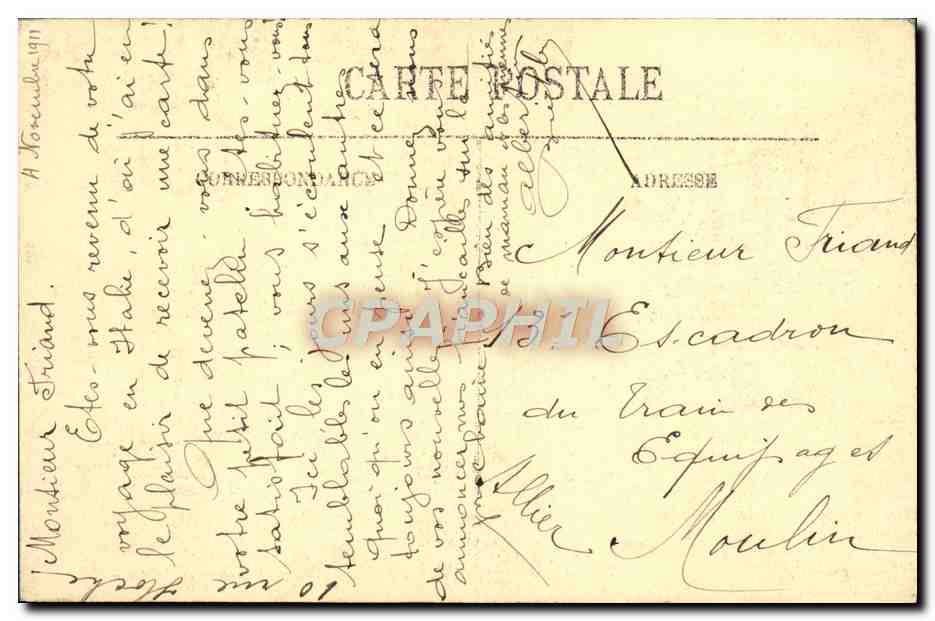 CARTE POSTALE
CORRESPONDANCE
ADRESSE
4 Novembre 1911
Monsieur Friand.
Etes-vous revenu de votre
voyage en Italie, d'où j'ai eu
le plaisir de recevoir une carte!
Que devenez-vous dans
votre petit patelin, êtes-vous
satisfait, vous habituez-vous
Ici les jours s'écoulent tous
semblables les uns aux autres
quoiqu'on en pense et ce sera
toujours ainsi. Donnez nous
de vos nouvelles, j'espère vous
annoncer nos fiancailles sur la
prochaine
Bien des amitiés
de maman
Albert
10 rue
Hoche
Monsieur Friand
13e Escadron
du Train des
Equipages
Moulin
Allier
CPAPHIL